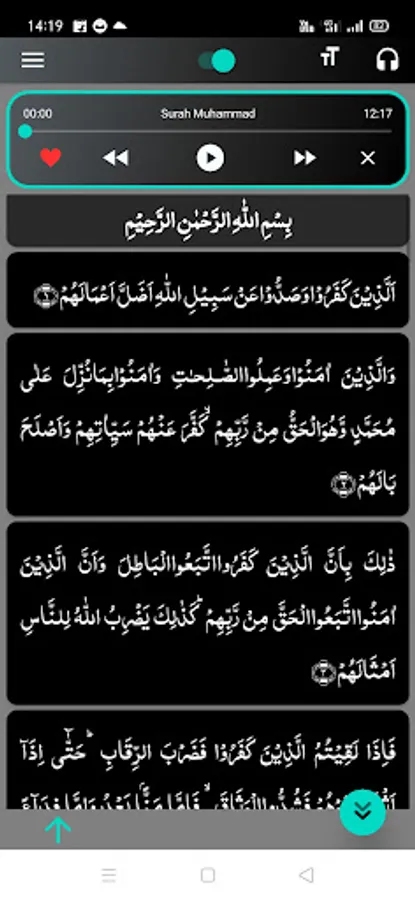 14:19
82
00:00 Surah Muhammad 12:17
بِسْمِ اللهِ الرَّحْمٰنِ الرَّحِيْمِ
اَلَّذِيْنَ كَفَرُوْا وَصَدُّوْا عَنْ سَبِيْلِ اللهِ اَضَلَّ اَعْمَالَهُمْ
وَالَّذِيْنَ اٰمَنُوْا وَعَمِلُوا الصّٰلِحٰتِ وَاٰمَنُوْا بِمَا نُزِّلَ عَلٰى
مُحَمَّدٍ وَّهُوَ الْحَقُّ مِنْ رَّبِّهِمْ ۙ كَفَّرَ عَنْهُمْ سَيِّاٰتِهِمْ وَاَصْلَحَ
بَالَهُمْ ﴿۲﴾
ذٰلِكَ بِاَنَّ الَّذِيْنَ كَفَرُوا اتَّبَعُوا الْبَاطِلَ وَاَنَّ الَّذِيْنَ
اٰمَنُوا اتَّبَعُوا الْحَقَّ مِنْ رَّبِّهِمْ ؕ كَذٰلِكَ يَضْرِبُ اللهُ لِلنَّاسِ
اَمْثَالَهُمْ ﴿۳﴾
فَاِذَا لَقِيْتُمُ الَّذِيْنَ كَفَرُوْا فَضَرْبَ الرِّقَابِ ؕ حَتّٰٓى اِذَآ